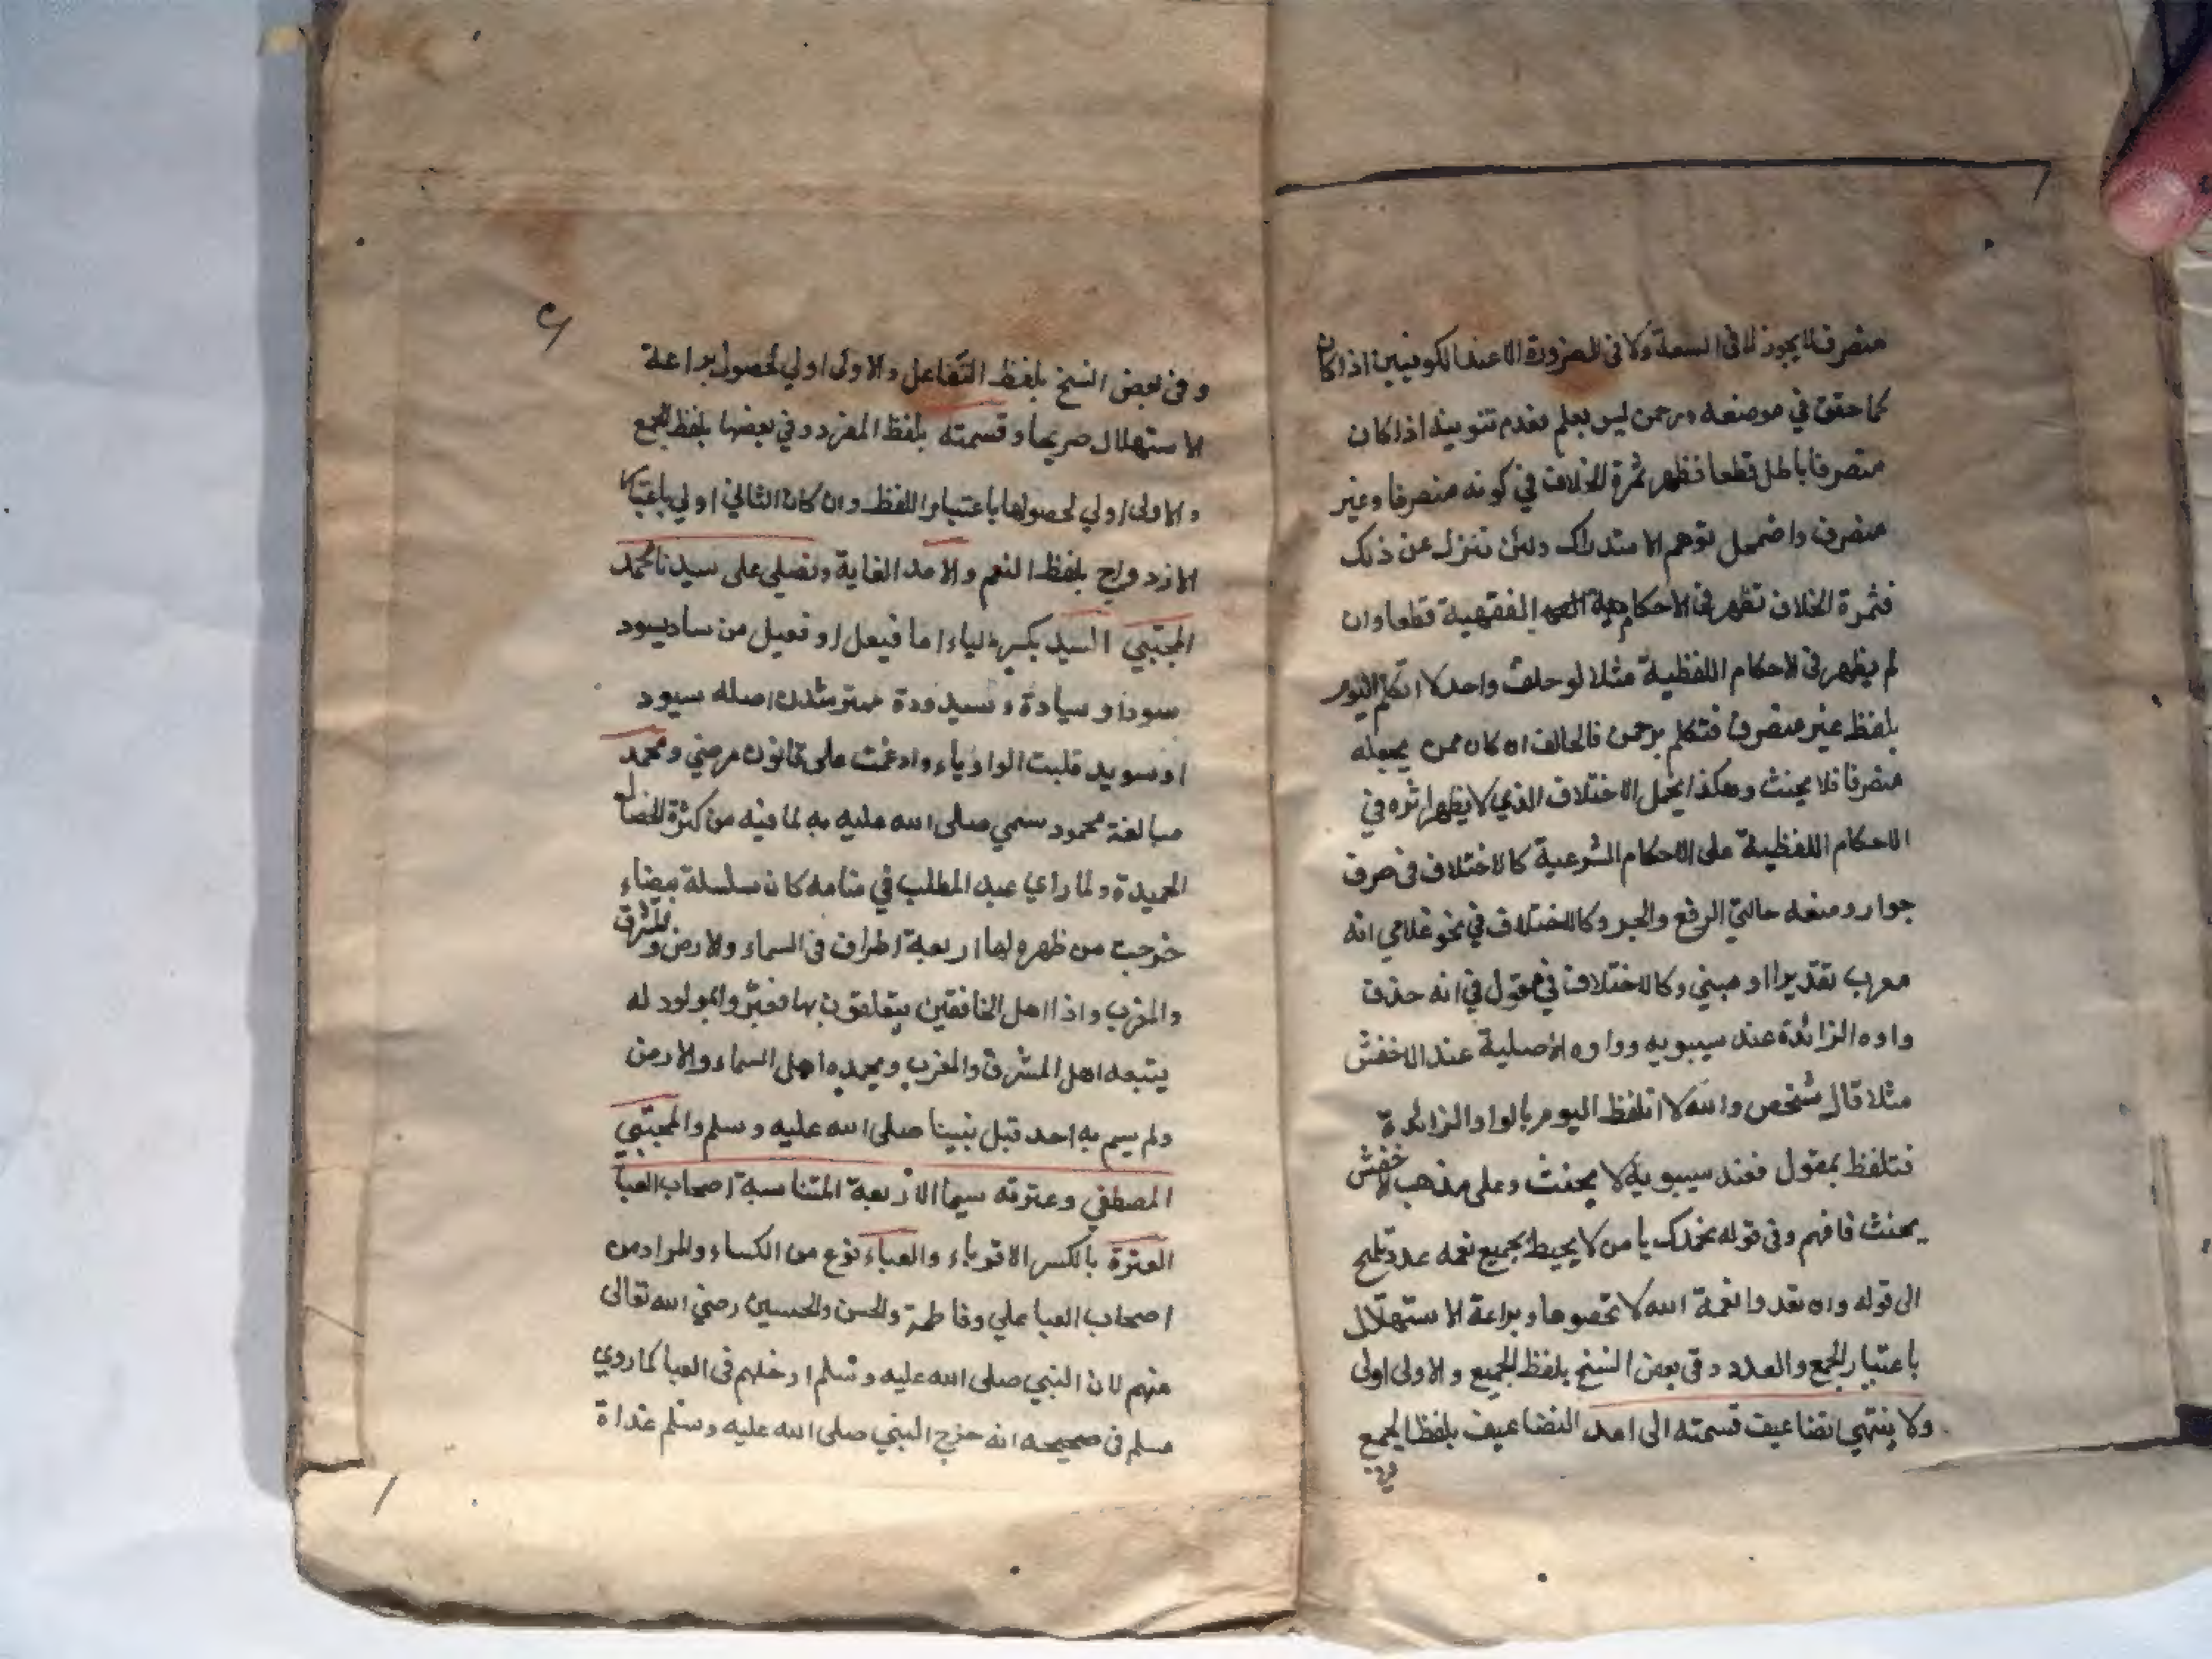 منصرف لا يجوز لا فى السعة ولا فى الضرورة الا عند الكوفيين اذا كان
كما حقق في موضعه ورحمن ليس بعلم فعدم تنوينه اذا كان
منصرفا باطل قطعا فظهر ثمرة الخلاف في كونه منصرفا وغير
منصرف واضمحل توهم الاستدراك ولئن ننزل عن ذلك
فثمرة الخلاف تظهر فى الاحكام الفقهية قطعا وان
لم يظهر فى الاحكام اللفظية مثلا لو حلف واحد لا اتكلم اليوم
بلفظ غير منصرف فتكلم برحمن فالحالف ان كان ممن يجعله
منصرفا فلا يحنث وهكذا يحمل الاختلاف الذي لا يظهر اثره في
الاحكام اللفظية على الاحكام الشرعية كالاختلاف فى صرف
جوار ومنعه حالتي الرفع والجر وكالاختلاف في نحو غلامي انه
معرب تقديرا او مبني وكالاختلاف في مقول في انه حذف
واوه الزائدة عند سيبويه وواوه الاصلية عند الاخفش
مثلا قال شخص والله لا اتلفظ اليوم بالواو الزائدة
فتلفظ بمقول فعند سيبويه لا يحنث وعلى مذهب الاخفش
يحنث فافهم وفى قوله نحمدك يا من لا يحيط بجميع نعمه عدد تلميح
الى قوله وان تعدوا نعمة الله لا تحصوها وبراعة الاستهلال
باعتبار الجمع والعدد وفى بعض النسخ بلفظ الجميع والاولى اولى
ولا ينتهي تضاعيف قسمته الى امد التضاعيف بلفظ الجمع
وفى
وفى بعض النسخ بلفظ التفاعل والاولى اولي لحصول براعة
الاستهلال صريحا وقسمته بلفظ المفرد وفي بعضها بلفظ الجمع
والاولى اولي لحصولها باعتبار اللفظ وان كان الثاني اولي باعتبار
الازدواج بلفظ النعم والامد الغاية ونصلي على سيدنا محمد
المجتبي السيد بكسر الياء اما فيعل او فعيل من ساد يسود
سودا وسيادة وسيدودة اصله سيود
او سويد قلبت الواو ياء وادغمت على قانون مرضي ومحمد
مبالغة محمود سمي صلى الله عليه به لما فيه من كثرة الخصال
الحميدة ولما راي عبد المطلب في منامه كان سلسلة بيضاء
خرجت من ظهره لها اربعة اطراف فى السماء والارض والمشرق
والمغرب واذا اهل الخافقين يتعلقون بها فعبر والمولود له
يتبعه اهل المشرق والمغرب ويحمده اهل السماء والارض
ولم يسم به احد قبل نبينا صلى الله عليه وسلم والمجتبي
المصطفي وعترته سيما الاربعة المتناسبة اصحاب العبا
العترة بالكسر الاقرباء والعباء نوع من الكساء والمراد من
اصحاب العبا علي وفاطمة والحسن والحسين رضي الله تعالى
عنهم لان النبي صلى الله عليه وسلم ادخلهم فى العبا كما روي
مسلم فى صحيحه انه خرج النبي صلى الله عليه وسلم غداة